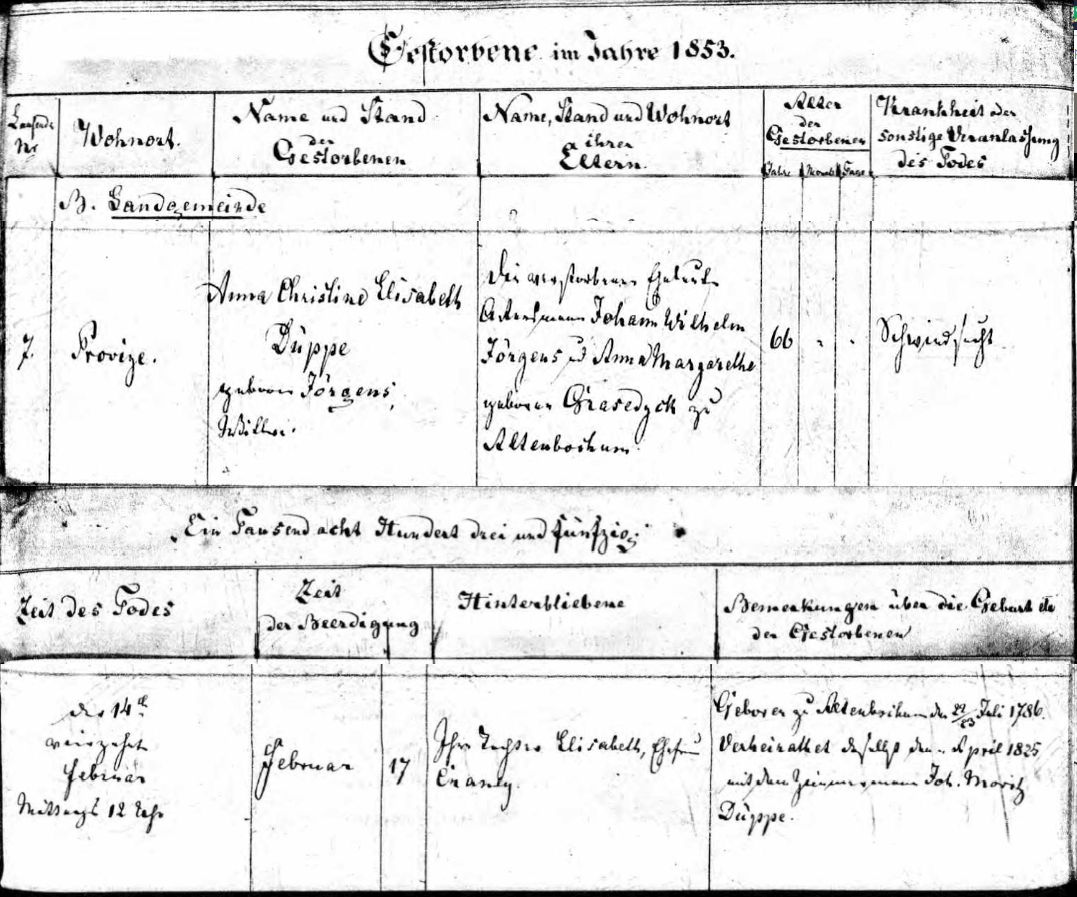 Gestorbene im Jahre 1853.
Laufende Nr
Wohnort.
Name und Stand
der
Gestorbenen
Name, Stand und Wohnort
ihrer
Eltern.
Alter
der
Gestorbenen
Jahre Monate Tage
Krankheit oder
sonstige Veranlassung
des Todes
B. Landgemeinde
7.
Provize.
Anna Christine Elisabeth
Düppe
geborne Jörgens,
Wittwe.
Die verstorbenen Eheleute
Ackersmann Johann Wilhelm
Jörgens und Anna Margarethe
geborne Grasedyck zu
Altenbochum
66 " "
Schwindsucht
Ein Tausend acht Hundert drei und fünfzig
Zeit des Todes
Zeit
der Beerdigung
Hinterbliebene
Bemerkungen über die Geburt etc
der Gestorbenen
den 14ten
vierzehnten
Februar
Mittags 12 Uhr
Februar 17
Ihre Tochter Elisabeth, Ehefrau
Geboren zu Altenbochum den 22/23 Juli 1786.
Verheirathet daselbst den " April 1825
mit dem Zimmermann Joh. Moritz
Düppe.